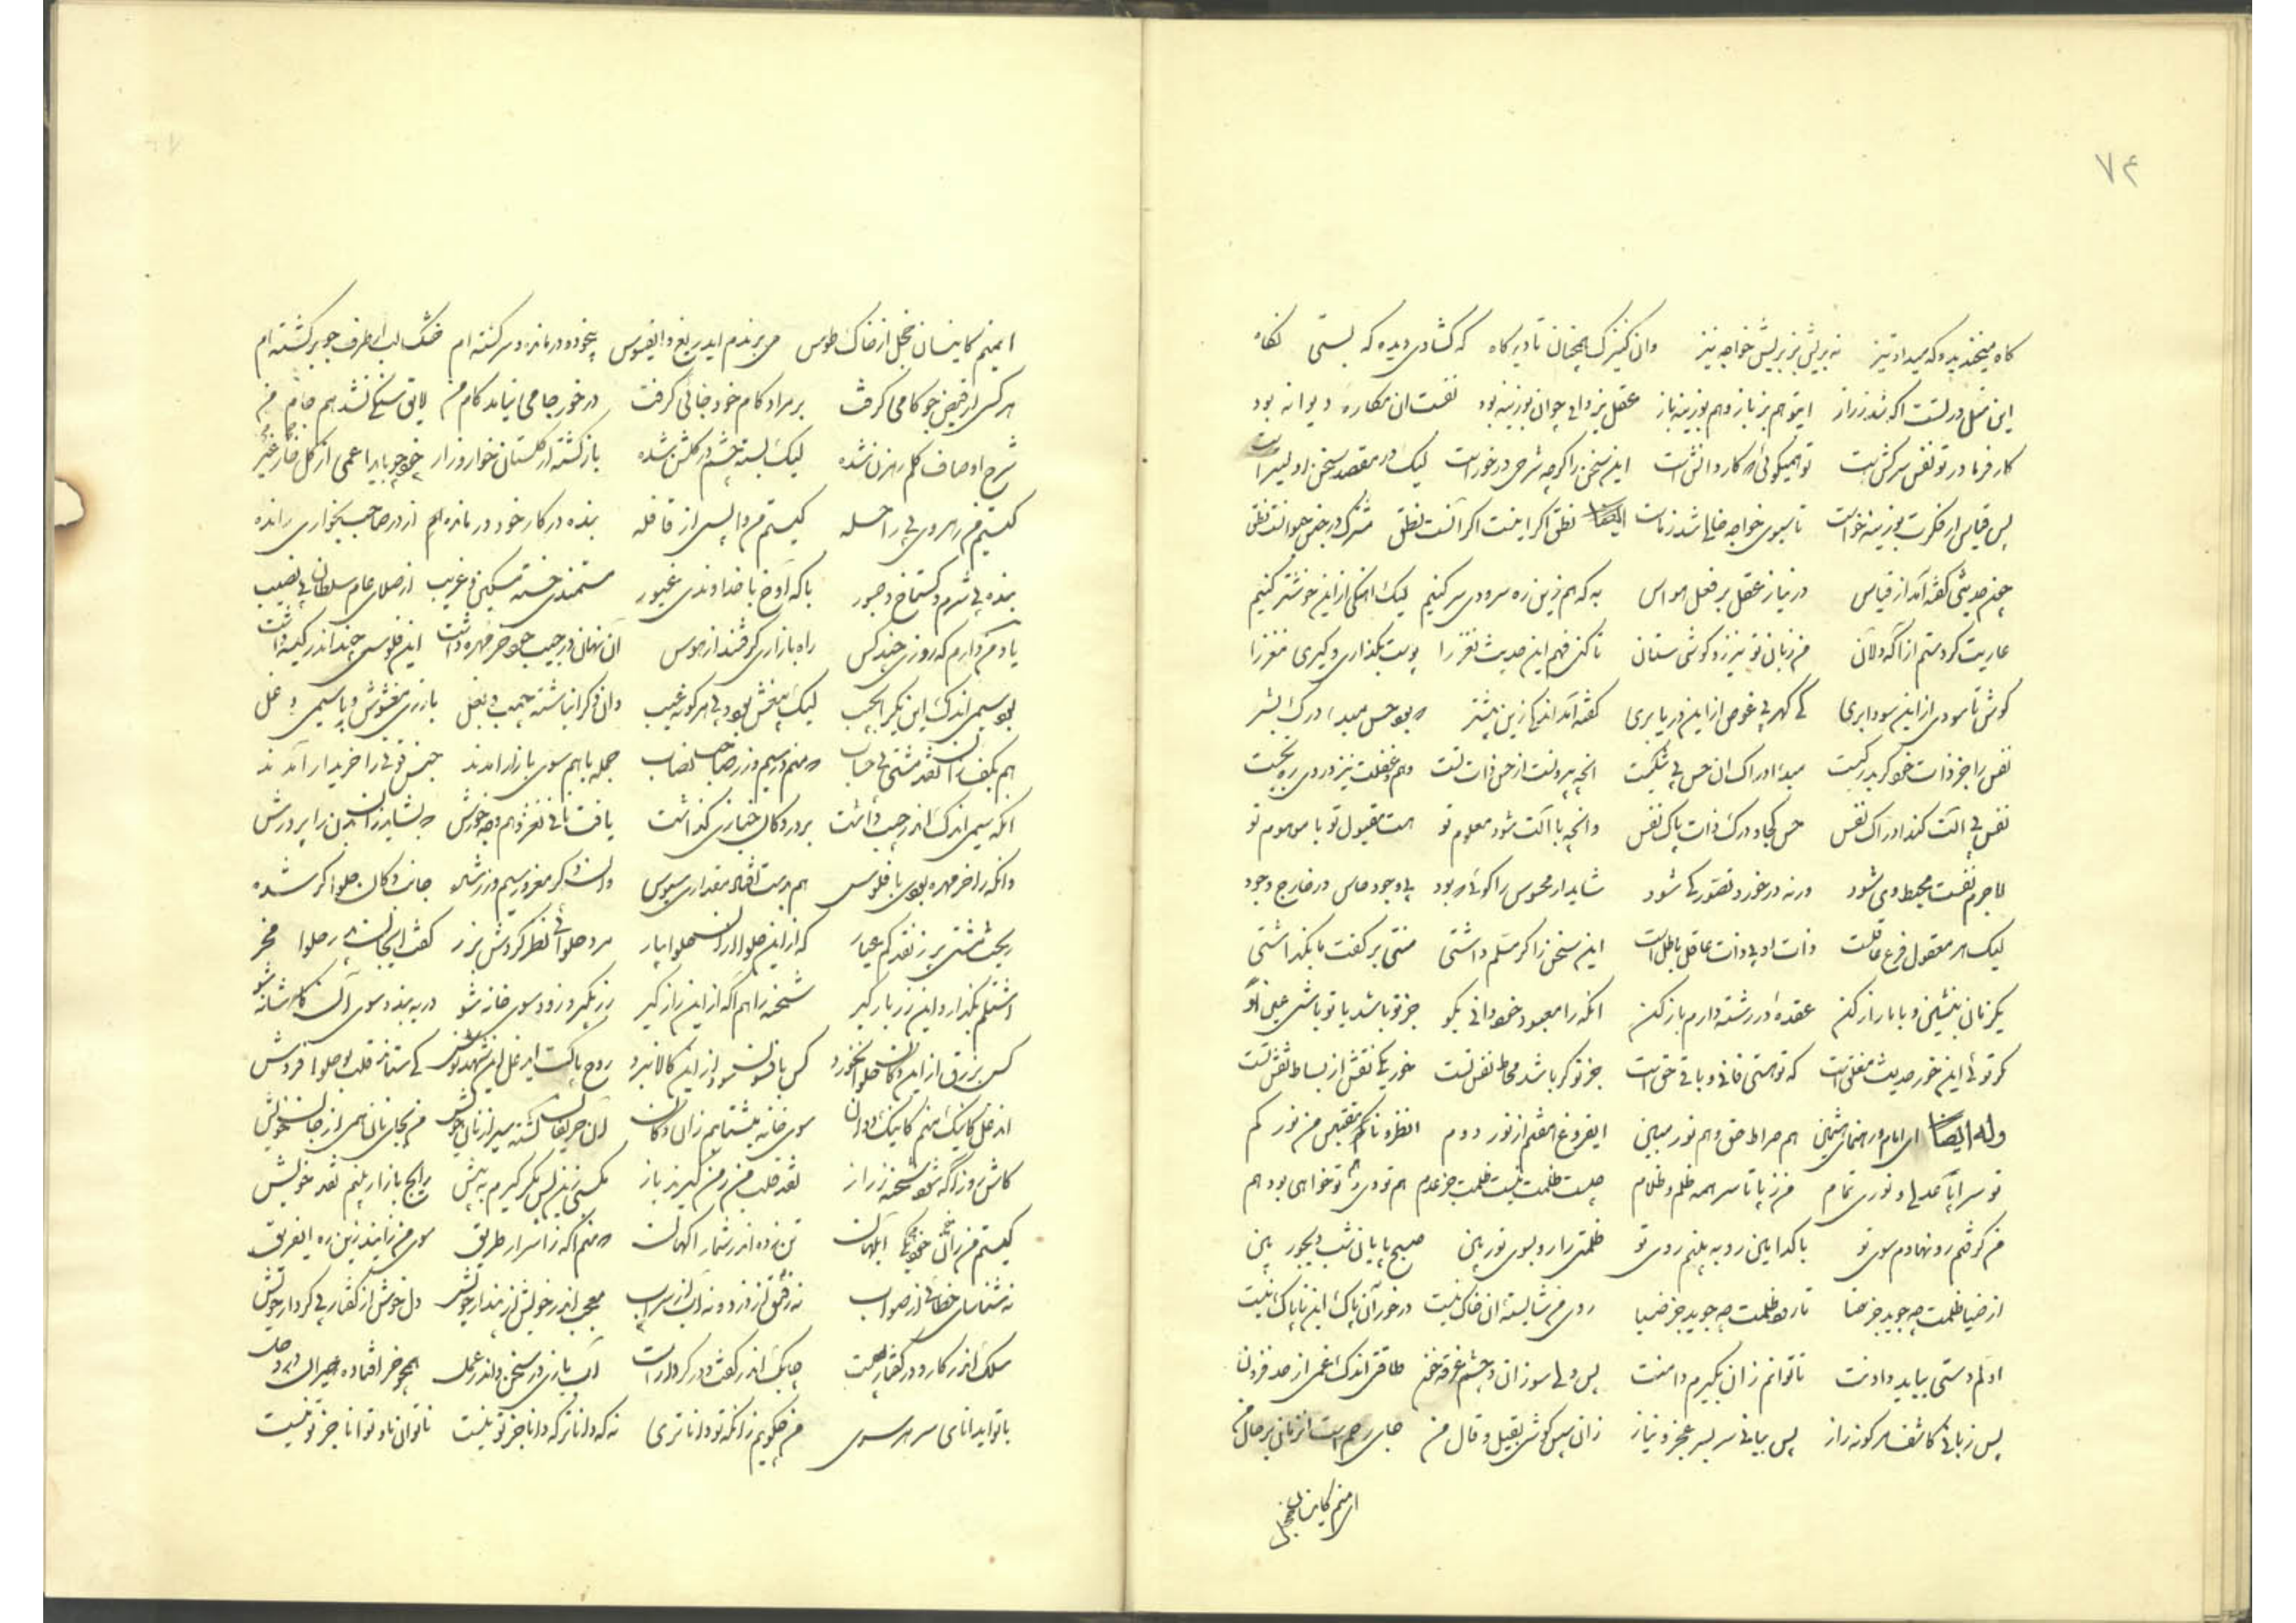 ۷۴
گاه میخندید و که میداد تیز نه بریش بز بریش خواجه نیز وان کنیزک همچنان تا دیرگاه که گشادی دیده که بستی نگاه
این مثل در تست اگه شد ز راز اینتو هم بزباز و هم بوزینه باز عقل بز دانی چو آن بوزینه بود نفست ان مکاره دیوانه بود
کار فرما در تو نفس سرکش است تو همیگوئی که کار دانش است این سخن را گرچه شرحی در خور است لیک در مقصد سخن اولیتر است
پس قیاس از فکرت بوزینه خواست تا بسوی خواجه
چند حدیثی گفته آمد از قیاس در نیاز عقل بر فعل حواس به که هم زین ره سرودی سر کنیم لیک اهنگی از این خوشتر کنیم
عاریت کردستم از آگه دلان من زبان تو نیز رو گوشی ستان تا کنی فهم این حدیث نغز را پوست بگذاری و گیری مغز را
گوش تا سودی از این سودا بری کی گهر بی غوص از این دریا بری گفته آمد اندکی زین پیشتر
نفس را جز ذات خود گر مدرکیست مبدا ادراک ان حس بی شکیست انچه بیرونست از حس ذات تست وهم و عقلت نیز در وی ره نجست
نفس بی الت کند ادراک نفس حس کجا و درک ذات پاک نفس وانچه با الت شود معلوم تو هست مقبول تو یا موهوم تو
لاجرم نفست محیط وی شود ورنه در خورد تصور کی شود شاید ار محسوس را گوئی که بود بی وجود حاس در خارج وجود
لیک هر معقول فرع عاقلست ذات او بی ذات عاقل باطل است این سخن را گر مسلم داشتی منتی بر گفت ما بگذاشتی
یک زمان بنشین و با ما راز کن عقده در رشته دارم باز کن انکه را معبود خود دانی بگو جز تو باشد یا تو باشی عین او
گر توئی این خود حدیث مغلق است که تو هستی فانی و باقی حق است جز تو گر باشد محاط نفس تست خود یکی نقش از بساط نفس تست
وله ایضا ای امام و رهنمای هشتمین هم صراط حق و هم نور مبین ایفروغ هفتم از نور دوم انظرونا نقتبس من نورکم
تو سراپا عدلی و نوری تمام من ز پا تا سر همه ظلم و ظلام چیست ظلمت نیست ظلمت جز عدم هم تو وی هم تو خواهی بود هم
من گرفتم رو نهادم سوی تو با کدامین رو به بینم روی تو ظلمتی را رو بسوی نور بین صبح با یا شب دیجور بین
از ضیا ظلمت چه جوید جز فنا تا چه ظلمت چه جوید جز ضیا روی من شایسته ان خاک نیست در خور آن پاک این ناپاک نیست
اولم دستی بباید دادنت تا توانم زان بگیرم دامنت پس دلی سوزان و چشم غرقه خون طاقتی اندک غمی از حد فزون
پس زبانی کاشف هر گونه راز پس بیانی سر بسر عجز و نیاز زان سپس گوشی بقیل و قال من جای رحم است ار نمائی بر حال من
ای منم کاینسان خجل
ای منم کاینسان خجل از خاک طوس می برندم ای دریغ و ایفسوس بیخود و درمانده و سرگشته ام خشک لب از طرف جو برگشته ام
هر کس از فیض جو کامی گرفت بر مراد کام خود جامی گرفت در خور جامی نیامد کام من لایق سنگی نشد هم جام من
شرح اوصاف گلم رهزن شده لیک بسته چشم در گلشن شده بازگشته از گلستان خوار و زار خود چو یابد اعمی از گل خار غیر
کیستم من رهروی بی راحله کیستم من واپسی از قافله بنده در کار خود درمانده از در صاحب بخواری رانده
بنده بی شرم و گستاخ و جسور با که آوخ با خداوندی غیور مستمندی خسته مسکین غریب از صلای عام سلطان بی نصیب
یاد من دارم که روزی چند کس راه بازاری گرفتند از هوس آن نهان در جیب خود خر مهره داشت این فلوسی چند اندر کیسه داشت
بود سیمی اندک این یک را بجیب لیک مغشوش بود بی هر گونه عیب وان دگر انباشته جیب و بغل با زری مغشوش و با سیمی دغل
هم بکف نقد مشتی بی حساب که منم در سیم و زر صاحب نصاب جمله با هم سوی بازار آمدند جنس قوتی را خریدار آمدند
انکه سیمی اندک اندر جیب داشت بر در دکان خبازی گذاشت یافت نانی نغز و هم وجه خورش که بشاید زان بدن را پرورش
وانکه را خر مهره بودی یا فلوس هم بدست افتاد مقداری سبوس وان دگر مغرور سیم و زر شده جانب دکان حلواگر شده
ریخت مشتی پر ز نقد کم عیار که از این حلوا حلوا بیار مرد حلوائی نظر کردش بزر گفت ای حلوا مخر
اشتلم بگذار و این زر باز گیر شحنه را هم آگه از این راز گیر زر بگیر و زود سوی خانه شو در به بند و سوی آن کاشانه شو
کس بزرق از این دکان حلوا نخورد کس بافسون سود از این کالا نبرد روح پاکست ایدغل این شهد نوش کی ستاند قلب بو حلوا فروش
ای دغل کاینک منم کاینک دوان سوی خانه بشتابم زان دکان آن حریفان گشته سیر از نان خویش من بجای نان همی از جان خویش
کاش نه روز آگه شود شحنه ز راز نقد قلب من ز من گیرند باز
کیستم من زان ابلهان تن زده اندر شمار آگهان که منم آگه ز اسرار طریق سوی من آئید زین ره ایفریق
نه شناسای خطائی از صواب نه آب از سراب معجب اندر خویش از پندار خویش دل خوش از گفتار بی کردار خویش
سلک اندر کار و در گفتار چست چابک اندر گفت و در کردار سست آب بازی در سخن و اندر عمل همچو خر افتاده حیران در وحل
با تو ای دانای سر هر سوی من چگویم زانکه تو داناتری نه که داناتر که دانا جز تو نیست ناتوانان را توانا جز تو نیست